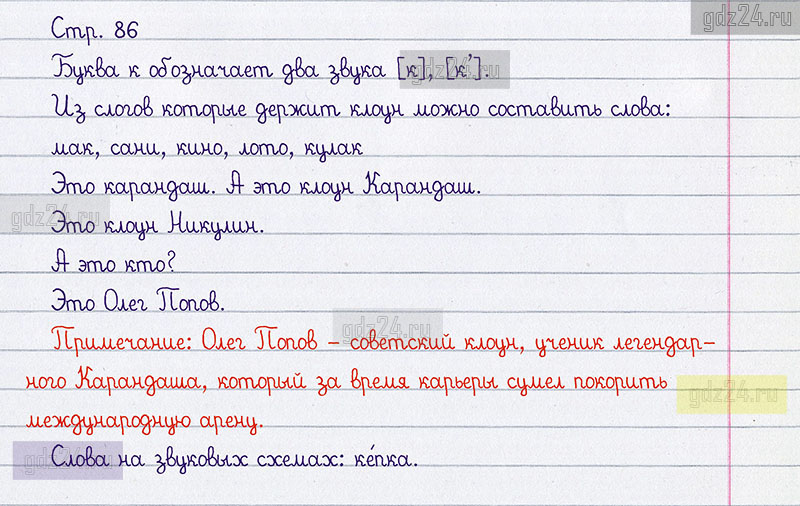 gdz24.ru
Стр. 86
Буква к обозначает два звука [к], [к'].
gdz24.ru
Из слогов которые держит клоун можно составить слова:
мак, сани, кино, лото, кулак
Это карандаш. А это клоун Карандаш.
gdz24.ru
Это клоун Никулин.
А это кто?
Это Олег Попов.
gdz24.ru
Примечание: Олег Попов – советский клоун, ученик легендар-
ного Карандаша, который за время карьеры сумел покорить
gdz24.ru
международную арену.
Слова на звуковых схемах: ке́пка.
gdz24.ru